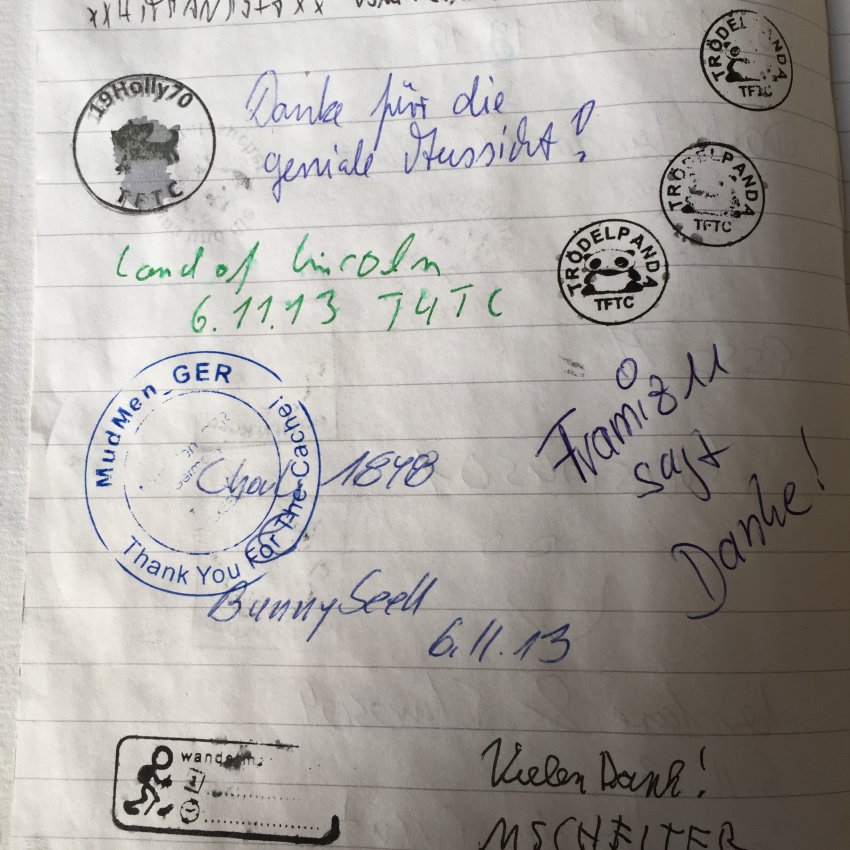 TRÖDELPANDA
TFTC
19Holly70
TFTC
Danke für die
geniale Aussicht!
TRÖDELPANDA
TFTC
TRÖDELPANDA
TFTC
Land of Lincoln
6.11.13 T4TC
MudMen_GER
Thank You For The Cache!
1848
Framiz11
sagt
Danke!
BunnySeell
6.11.13
Vielen Dank!
MSCHEITER